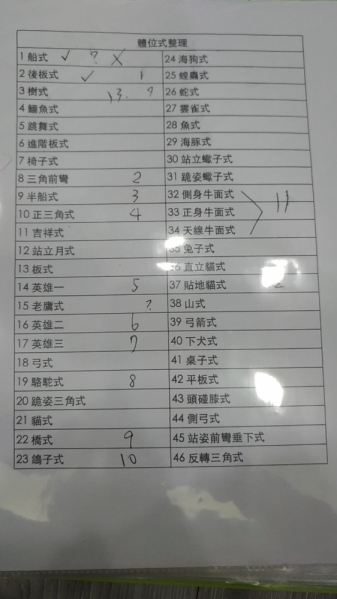 體位式整理
1 船式 ✓ ? X
2 後板式 ✓ 1
3 樹式 13. ?
4 鱷魚式
5 跳舞式
6 進階板式
7 椅子式
8 三角前彎 2
9 半船式 3
10 正三角式 4
11 吉祥式
12 站立月式
13 板式
14 英雄一 5
15 老鷹式 ?
16 英雄二 6
17 英雄三 7
18 弓式
19 駱駝式 8
20 跪姿三角式
21 貓式
22 橋式 9
23 鴿子式 10
24 海狗式
25 蝗蟲式
26 蛇式
27 雲雀式
28 魚式
29 海豚式
30 站立蠍子式
31 跪姿蠍子式
32 側身牛面式
33 正身牛面式 11
34 天線牛面式
35 兔子式
36 直立貓式
37 貼地貓式
38 山式
39 弓箭式
40 下犬式
41 桌子式
42 平板式
43 頭碰膝式
44 側弓式
45 站姿前彎垂下式
46 反轉三角式